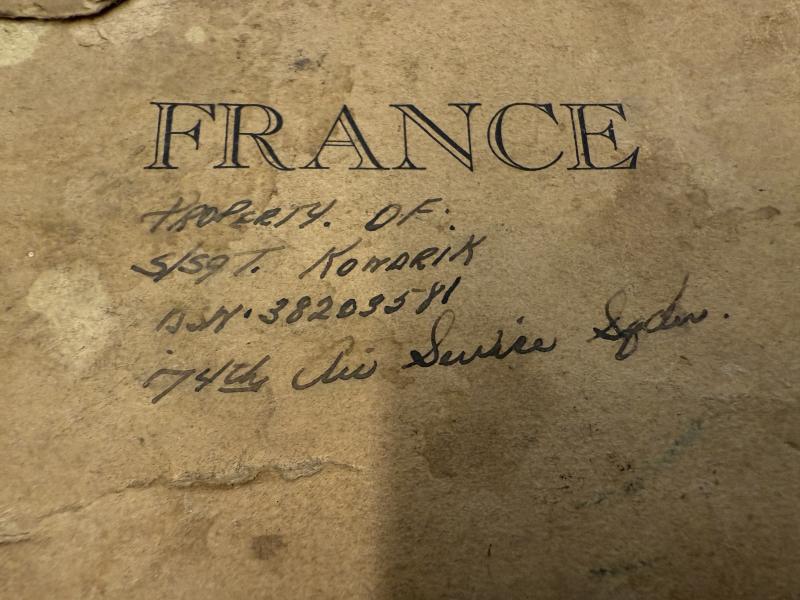 FRANCE
PROPERTY. OF.
S/SGT. KOWARIK
ASN. 38203581
74th Air Service Sqdrn.